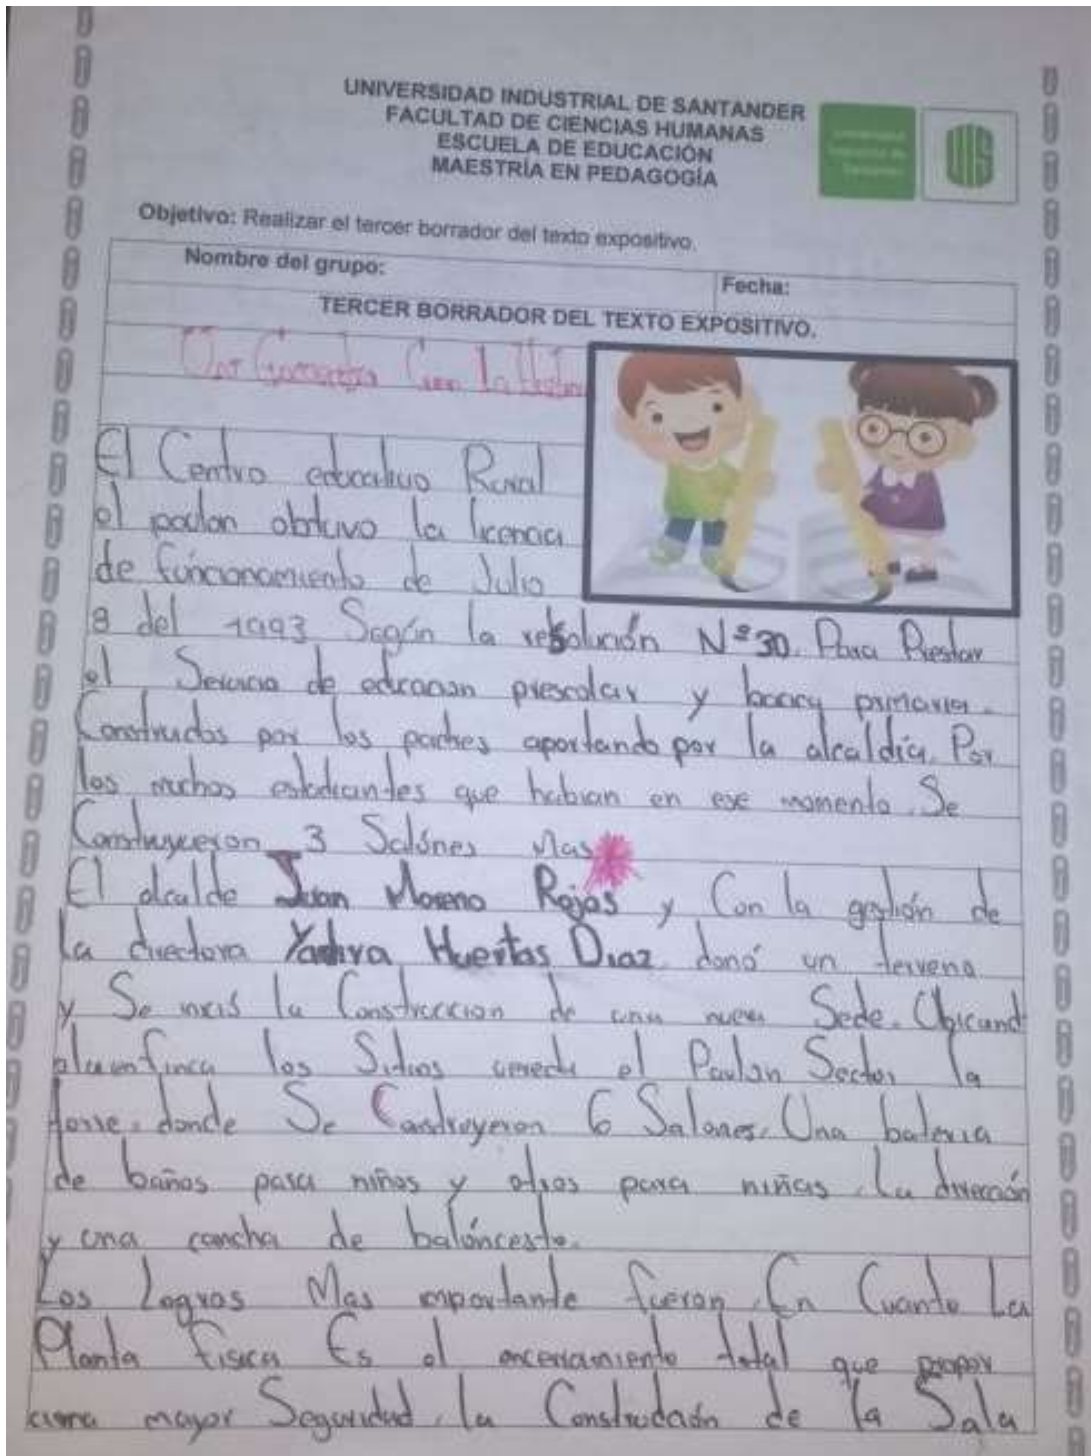 UNIVERSIDAD INDUSTRIAL DE SANTANDER
FACULTAD DE CIENCIAS HUMANAS
ESCUELA DE EDUCACIÓN
MAESTRÍA EN PEDAGOGÍA
UIS
Objetivo: Realizar el tercer borrador del texto expositivo.
Nombre del grupo:
Fecha:
TERCER BORRADOR DEL TEXTO EXPOSITIVO.
El Centro educativo Rural
el paulon obtuvo la licencia
de funcionamiento de Julio
8 del 1993 Según la resolución Nº 30. Para Prestar
el Servicio de educacion prescolar y primaria.
Construidos por los padres aportando por la alcaldía. Por
los muchos estudiantes que habian en ese momento. Se
Construyeron 3 Salónes Mas
El alcalde Juan Moreno Rojas y Con la gestión de
la directora Yadira Huertas Diaz donó un terreno
y Se la Construccion de una Sede. Ubicand
finca los el Paulon Sector la
torre. donde Se Construyeron 6 Salones. Una bateria
de baños para niños y otros para niñas. La dirección
y una cancha de balóncesto.
Los Logros Mas importante fueron. En Cuanto La
Planta Fisica Es el encerramiento total que propor
ciona mayor Seguridad. la de la Sala